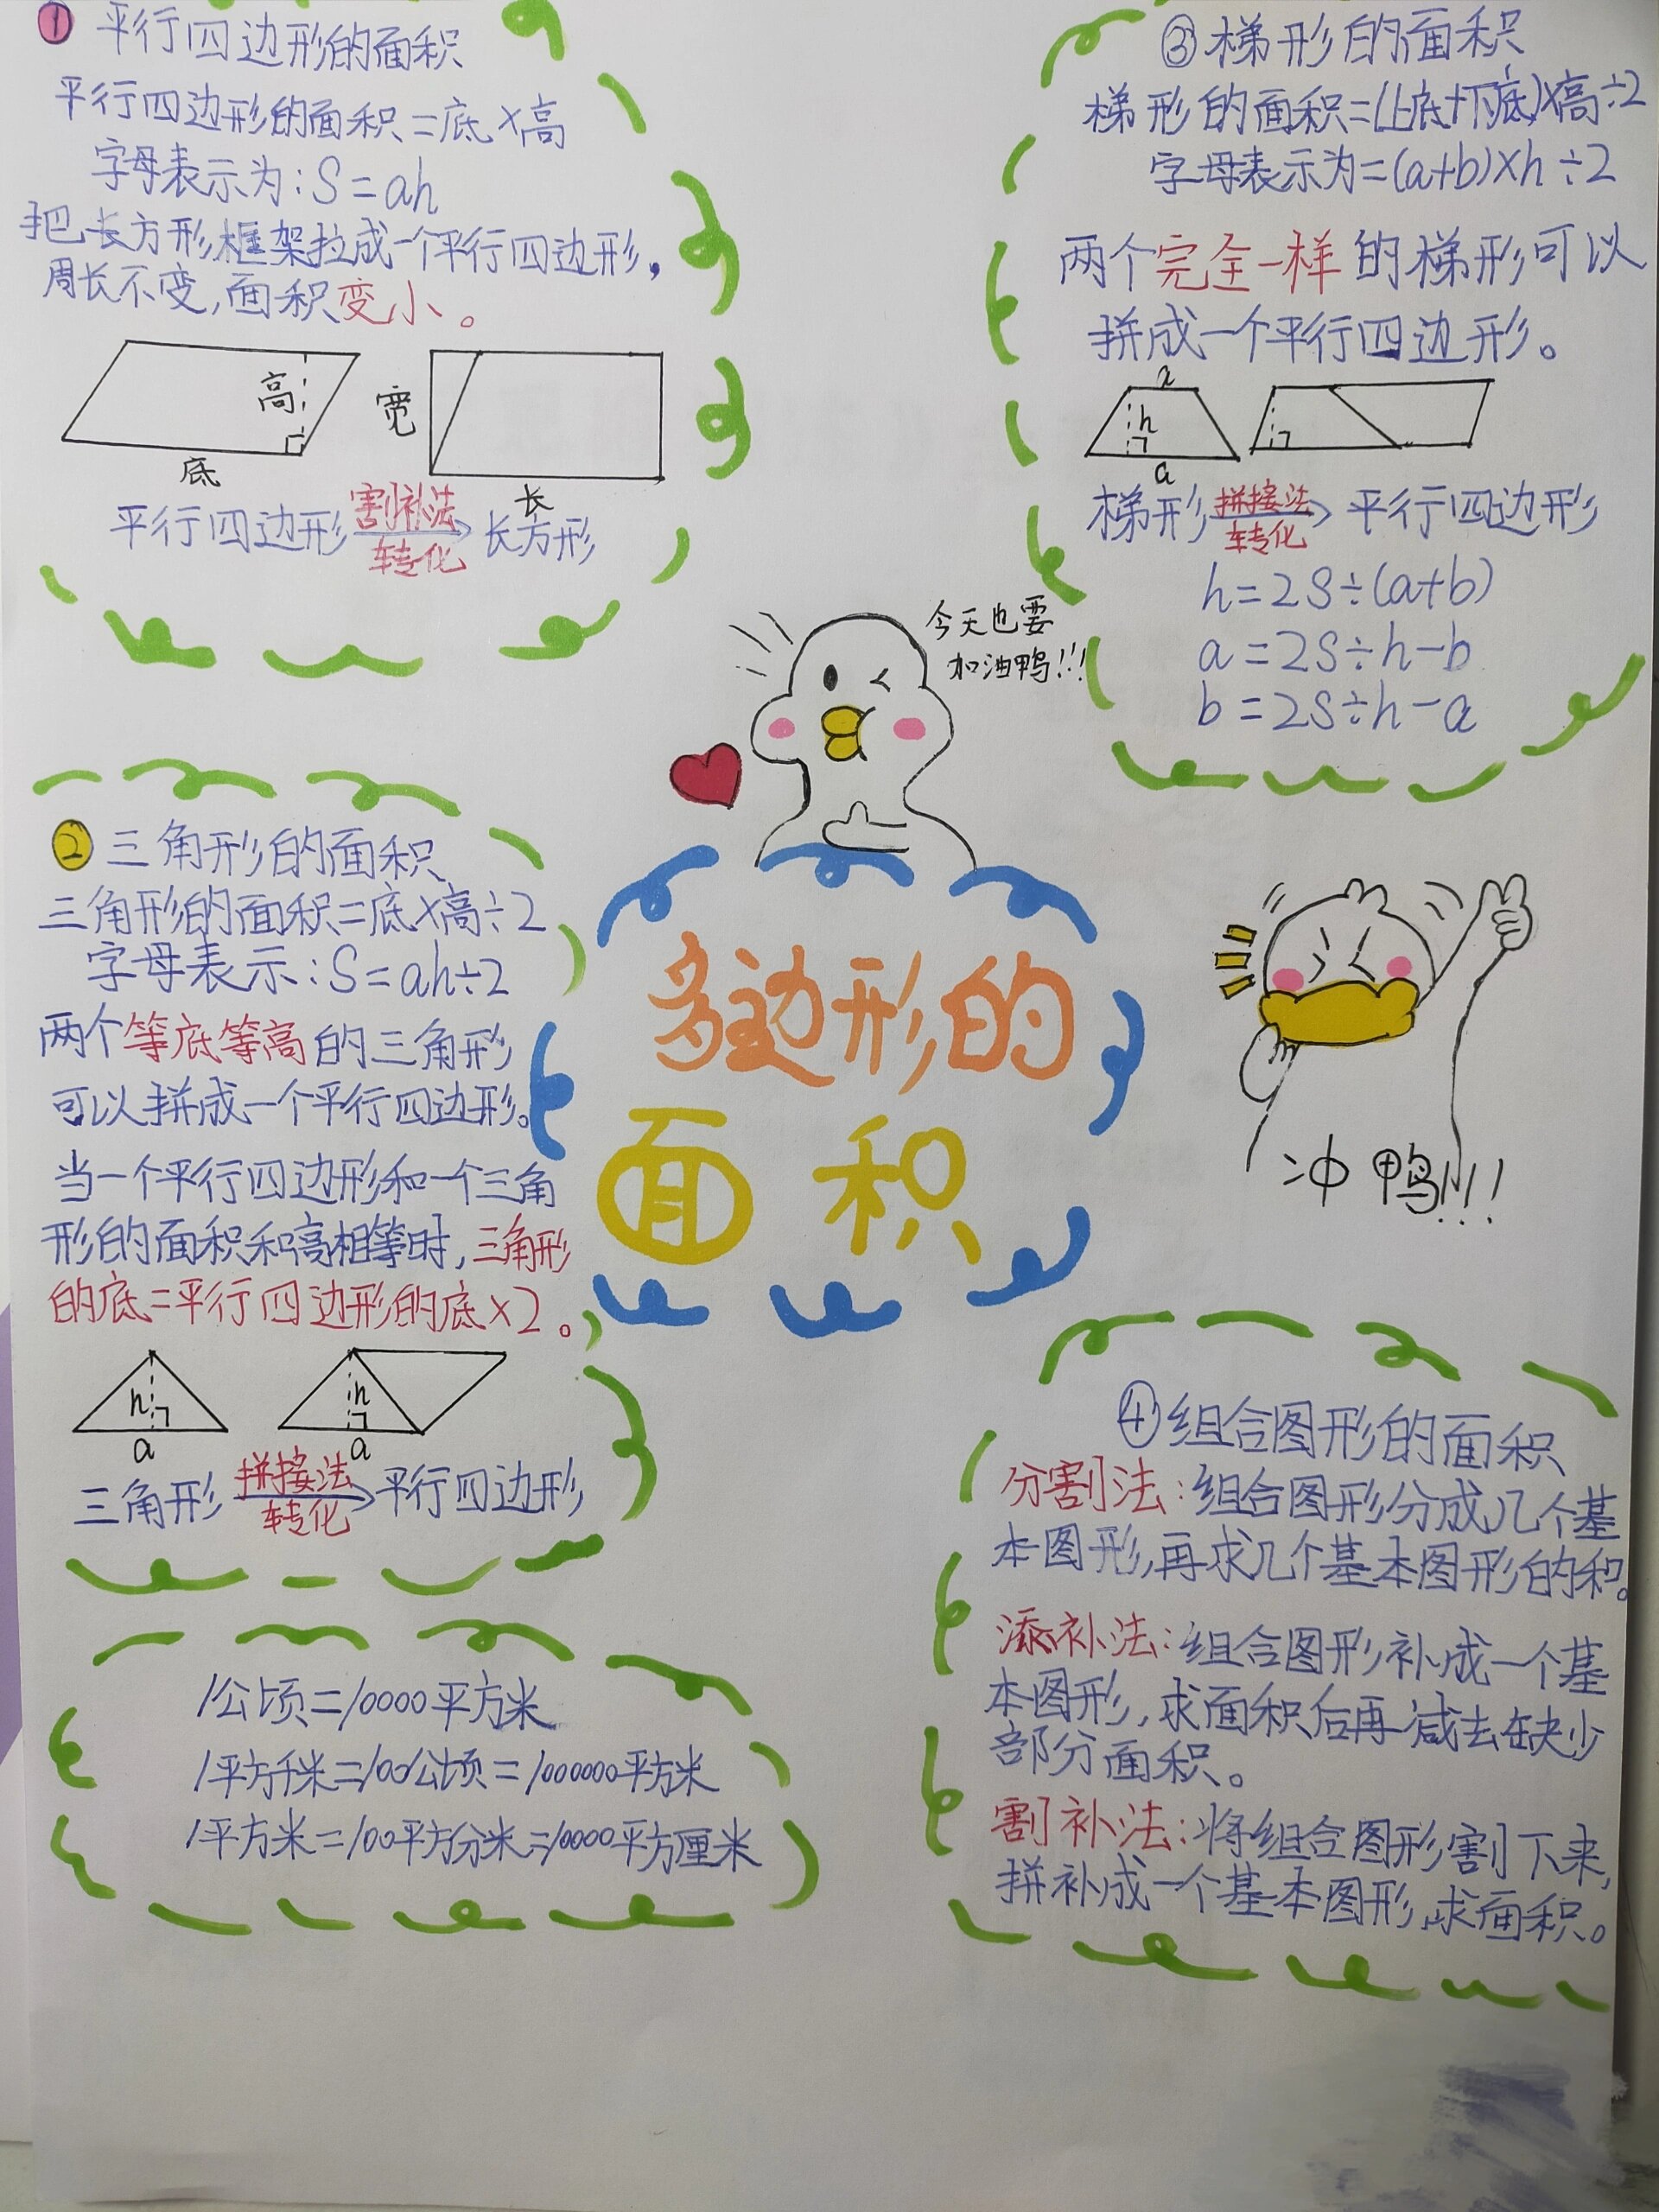 ① 平行四边形的面积
平行四边形的面积=底×高
字母表示为:S=ah
把长方形框架拉成一个平行四边形,
周长不变,面积变小。
高
底
宽
长
平行四边形 割补法 转化 长方形
② 三角形的面积
三角形的面积=底×高÷2
字母表示:S=ah÷2
两个等底等高的三角形
可以拼成一个平行四边形。
当一个平行四边形和一个三角
形的面积和高相等时,三角形
的底=平行四边形的底×2。
h
a
h
a
三角形 拼接法 转化 平行四边形
1公顷=10000平方米
1平方千米=100公顷=1000000平方米
1平方米=100平方分米=10000平方厘米
今天也要
加油鸭!!!
多边形的
面积
③梯形的面积
梯形的面积=(上底+下底)×高÷2
字母表示为=(a+b)×h÷2
两个完全一样的梯形可以
拼成一个平行四边形。
h
a
梯形 拼接法 转化 平行四边形
h=2S÷(a+b)
a=2S÷h-b
b=2S÷h-a
冲鸭!!!
④组合图形的面积
分割法:组合图形分成几个基
本图形,再求几个基本图形的和。
添补法:组合图形补成一个基
本图形,求面积后再减去缺少
部分面积。
割补法:将组合图形割下来,
拼补成一个基本图形,求面积。